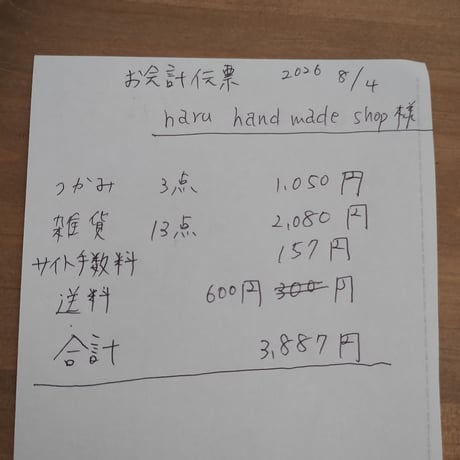 お会計伝票 2026 8/4
haru hand made shop様
つかみ 3点 1,050円
雑貨 13点 2,080円
サイト手数料 157円
送料 600円 300円
合計 3,887円